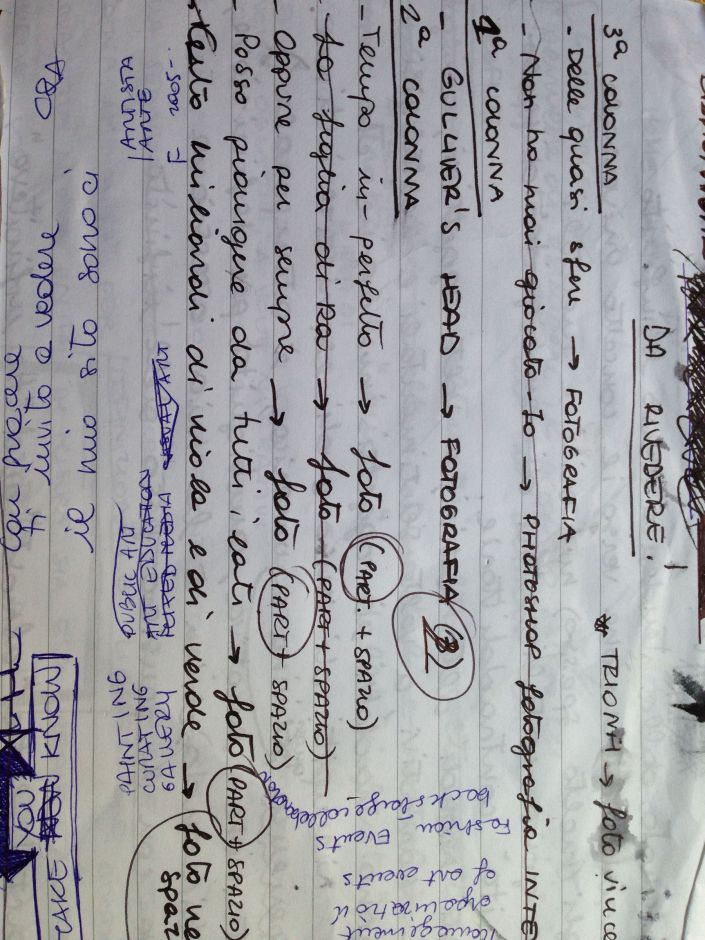 DA RIVEDERE!
* TRIONFI → foto vince
3ª COLONNA
- Delle quasi sfere → FOTOGRAFIA
- Non ho mai giocato-Io → PHOTOSHOP fotografia INTE
1ª COLONNA
- GULLIVER'S HEAD → FOTOGRAFIA (B)
2ª COLONNA
- Tempo in-perfetto → foto (PART. + SPAZIO)
- La figlia di Ra → foto (PART + SPAZIO)
- Oppure per sempre → foto (PART + SPAZIO)
- Posso piangere da tutti i lati → foto (PART + SPAZIO)
- Cento miliardi di viola e di verde → foto ne
spaz
Management
organization
of art events
Fashion Events
backstage collaboration
F 2005-..
ARTISTA
ARTE
MIXED MEDIA
ART EDUCATION
PUBLIC ART
GALLERY
CURATING
PAINTING
il mio sito sono ci
ORA
ti invito a vedere
Con piacere
TAKE KNOW
YOU